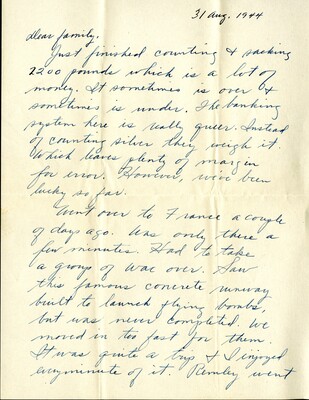 31 Aug. 1944
Dear family.
Just finished counting & sacking
2200 pounds which is a lot of
money. It sometimes is over &
sometimes is under. The banking
system here is really queer. Instead
of counting silver they weigh it.
Which leaves plenty of margin
for error. However, we've been
lucky so far.
Went over to France a couple
of days ago. Was only there a
few minutes. Had to take
a group of Wac over. Saw
this famous concrete runway
built to launch flying bombs,
but was never completed. We
moved in too fast for them.
It was quite a trip & I enjoyed
every minute of it. Remley went